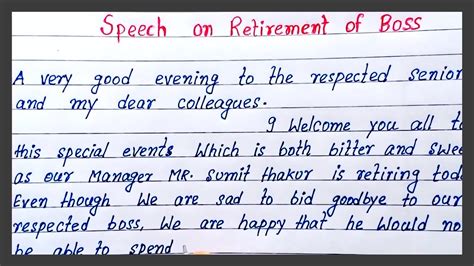 Speech on Retirement of Boss
A very good evening to the respected senior
and my dear colleagues.
I Welcome you all to
this special events Which is both bitter and swee
as our Manager MR. Sumit Thakur is retiring tod
Even though We are sad to bid goodbye to our
respected boss, We are happy that he Would no
be able to spend